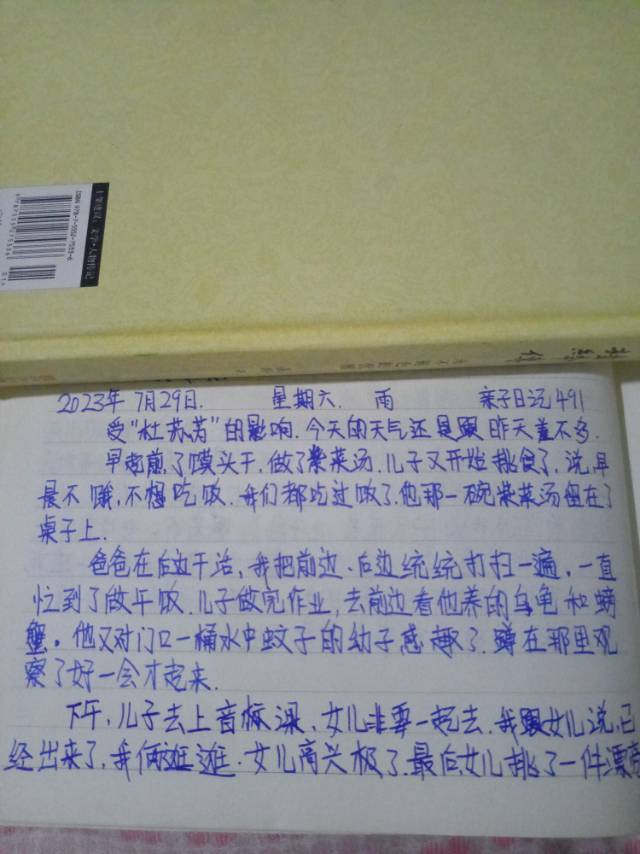 上架建议：文学·人物传记
ISBN 978-7-5502-7553-6
2023年7月29日. 星期六. 雨 亲子日记491
受"杜苏芮"的影响.今天的天气还是跟昨天差不多.
早起煎了馍头干,做了紫菜汤,儿子又开始挑食了,说,早
晨不饿,不想吃饭.我们都吃过饭了.他那一碗紫菜汤留在了
桌子上.
爸爸在后边干活,我把前边.后边统统打扫一遍,一直
忙到了做午饭.儿子做完作业,去前边看他养的乌龟和螃
蟹.他又对门口一桶水中蚊子的幼子感趣了.蹲在那里观
察了好一会才起来.
下午,儿子去上音标课,女儿非要一起去.我跟女儿说,已
经出来了,我俩逛逛.女儿高兴极了.最后女儿挑了一件漂亮